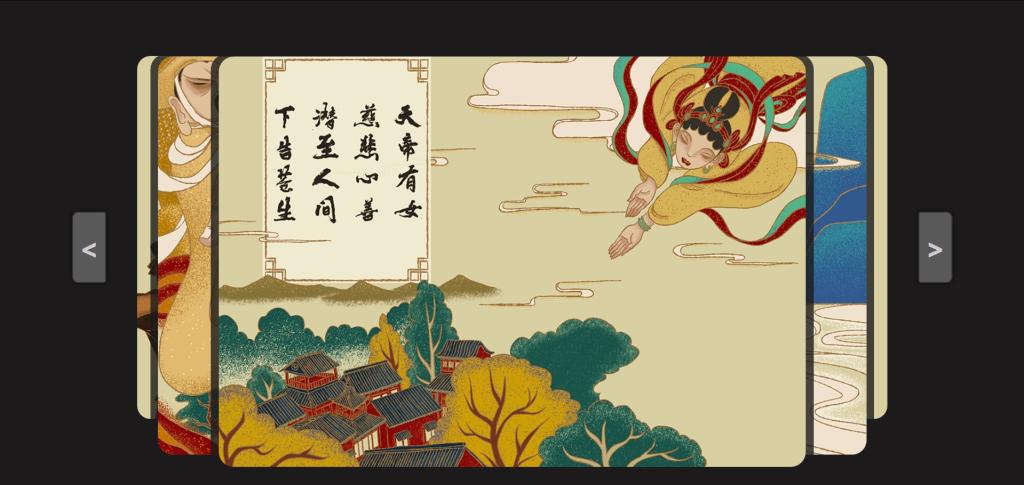 天帝有女
慈悲心善
潜至人间
下告苍生
<
>